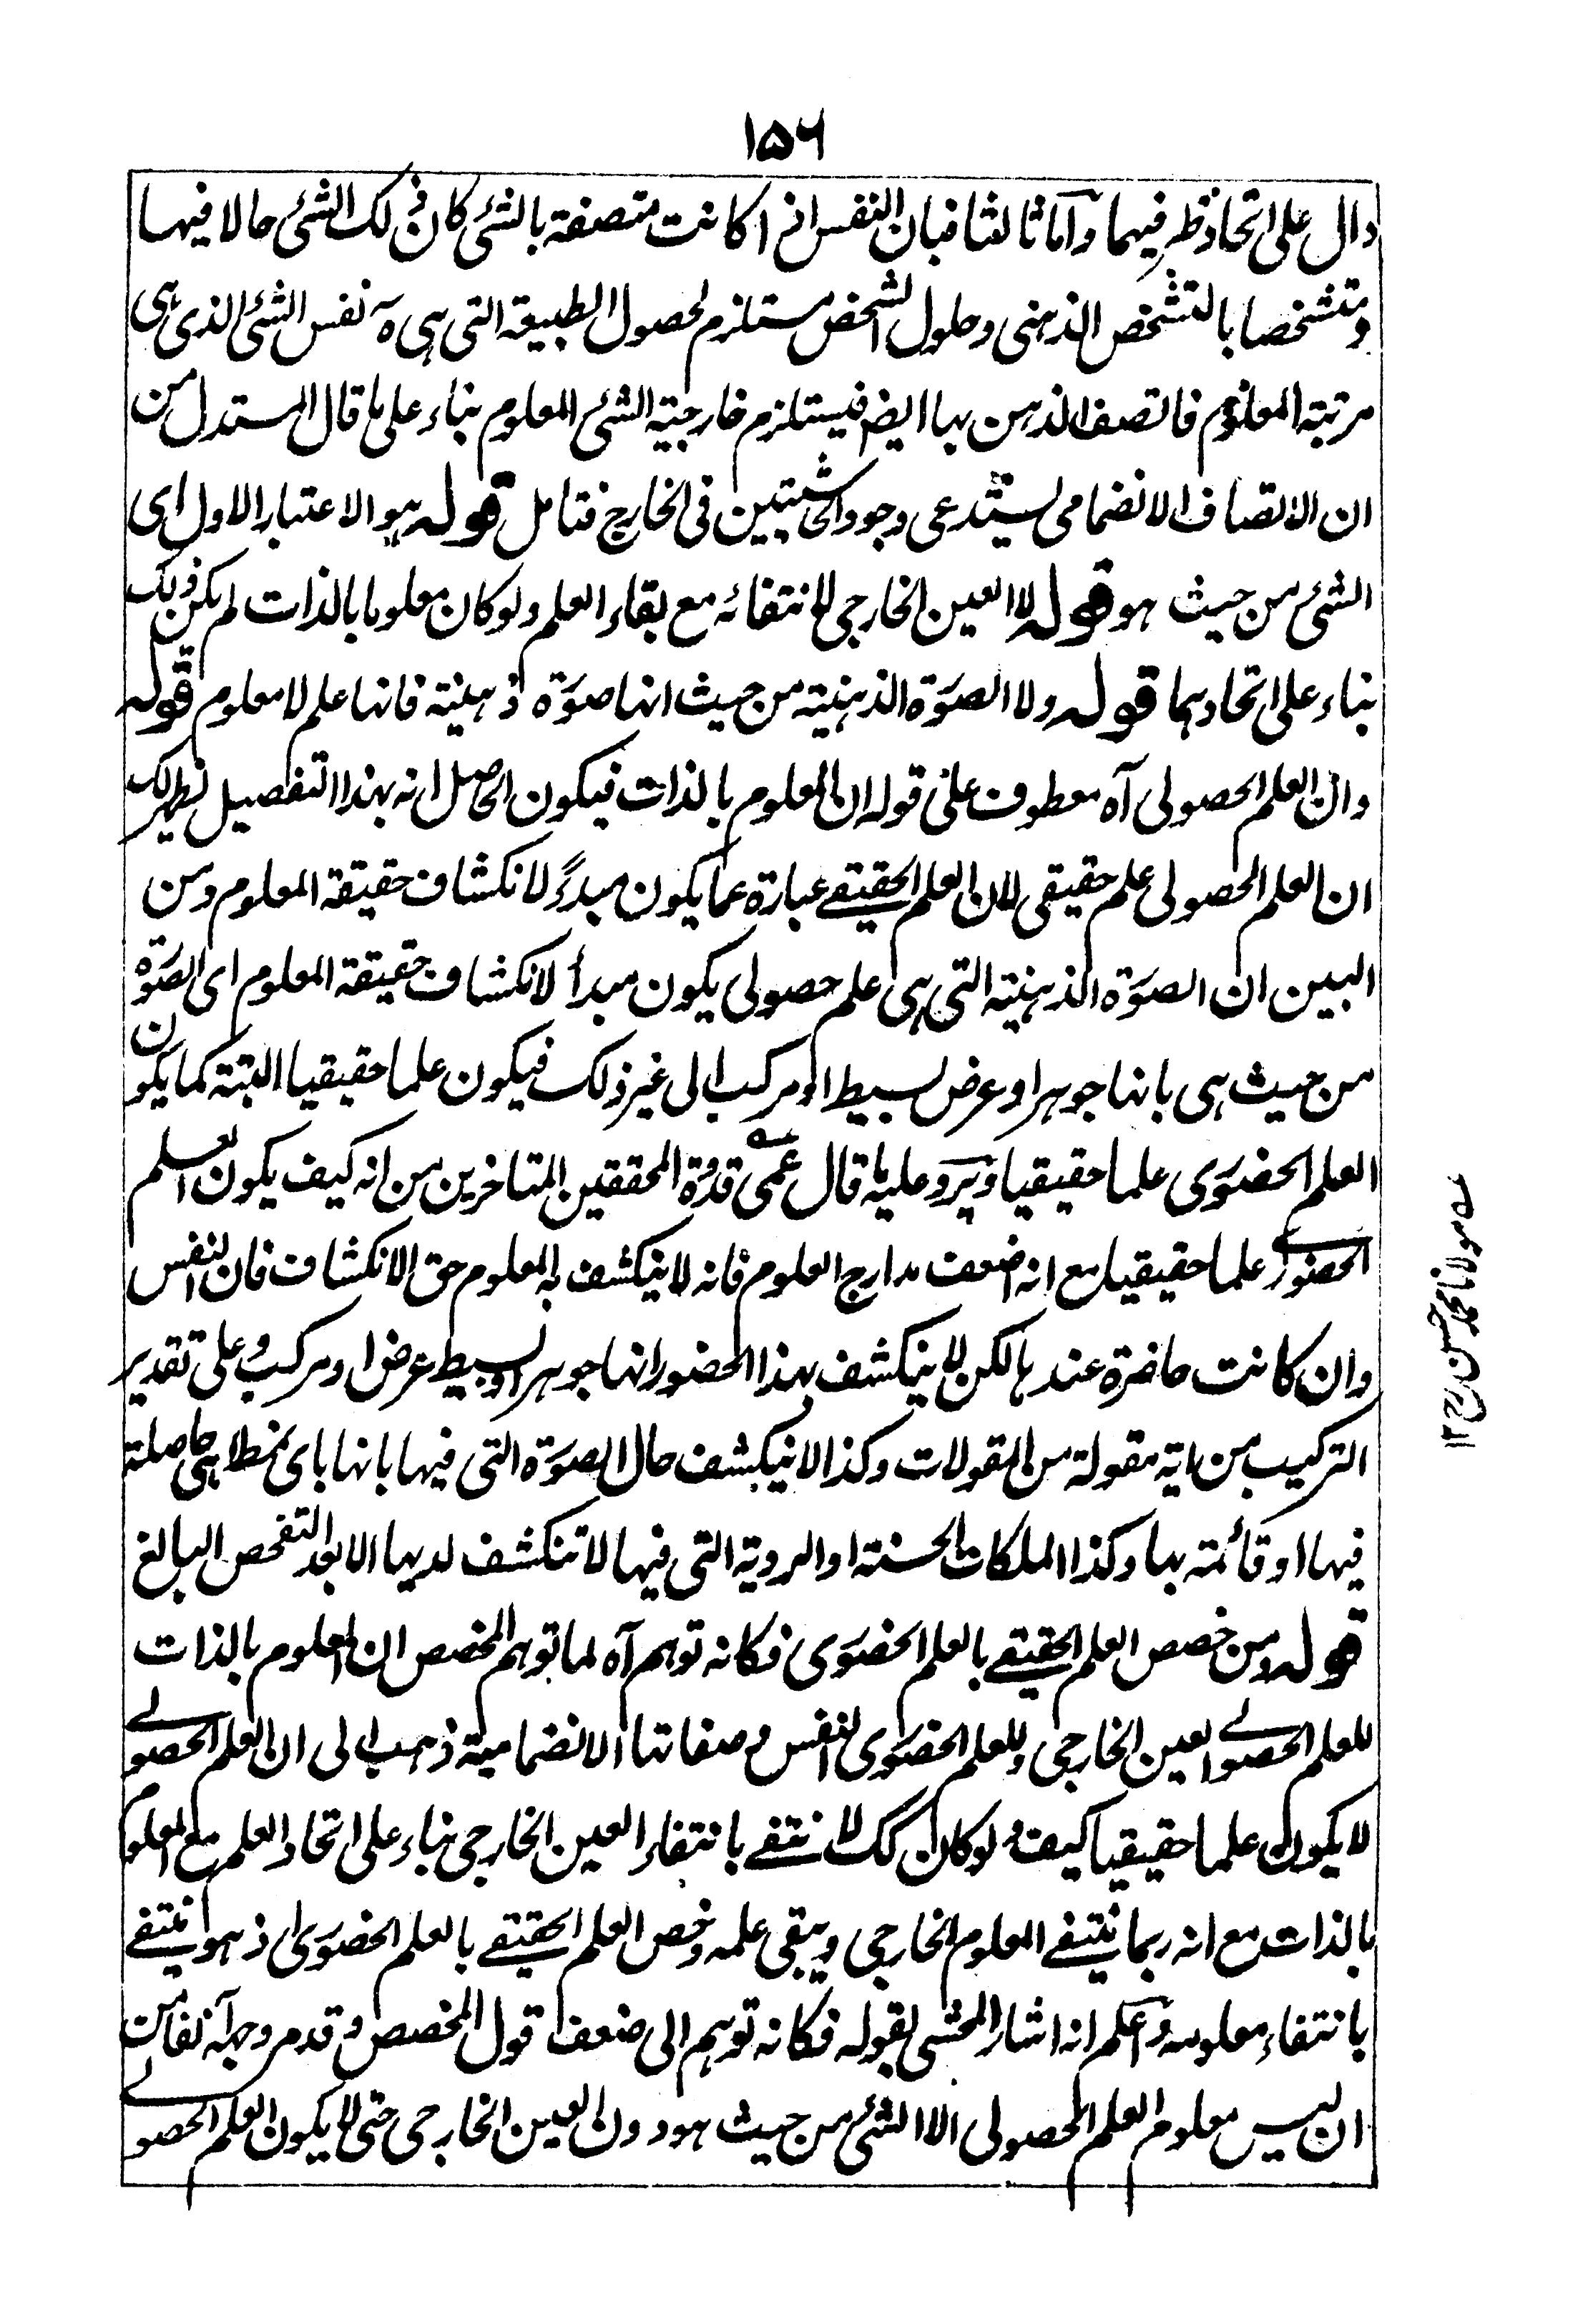 ١٥٦
دال على اتحاذ ظرفيهما وآما ثالثا فبان النفس اذا كانت متصفة بالشئ كان ذلك الشئ حالا فيها
ومتشخصا بالتشخص الذهنى وحلول الشخص مستلزم لحصول الطبيعة التى هى نفس الشئ الذى هى
مرتبة المعلوم فاتصف الذهن بها ايضا فيستلزم خارجية الشئ المعلوم بناء على ما قال المستدل من
ان الاتصاف الانضمامى يستدعى وجود الحاشيتين فى الخارج فتامل قوله هو الاعتبار الاول اى
الشئ من حيث هو قوله لا العين الخارجى لانتفائه مع بقاء العلم ولو كان معلوما بالذات لم يكن ذلك
بناء على اتحادهما قوله ولا الصورة الذهنية من حيث انها صورة ذهنية فانها علم لا معلوم قوله
وان العلم الحصولى آه معطوف على قوله ان المعلوم بالذات فيكون الحاصل انه بهذا التفصيل يظهر لك
ان العلم الحصولى علم حقيقى لان العلم الحقيقى عبارة عما يكون مبدأ لانكشاف حقيقة المعلوم ومن
البين ان الصورة الذهنية التى هى علم حصولى يكون مبدأ لانكشاف حقيقة المعلوم اى الصورة
من حيث هى بانها جوهر او عرض بسيط او مركب الى غير ذلك فيكون علما حقيقيا البتة كما يكون
العلم الحضورى علما حقيقيا ويرد عليه ما قال عمى قدوة المحققين المتاخرين من انه كيف يكون العلم
الحضورى علما حقيقيا مع انه اضعف مدارج العلوم فانه لا ينكشف به المعلوم حق الانكشاف فان النفس
وان كانت حاضرة عندها لكن لا ينكشف بهذا الحضور انها جوهر او بسيط عرض او مركب وعلى تقدير
التركيب من اية مقولة من المقولات وكذا لا ينكشف حال الصورة التى فيها بانها باى نمط هى حاصلة
فيها او قائمة بها وكذا الملكات الحسنة او الردية التى فيها لا تنكشف لديها الا بعد التفحص البالغ
قوله ومن خصص العلم الحقيقى بالعلم الحضورى فكانه توهم آه لما توهم المخصص ان المعلوم بالذات
للعلم الحصولى العين الخارجى وللعلم الحضورى النفس وصفاتها الانضمامية ذهب الى ان العلم الحصولى
لا يكون علما حقيقيا كيف ولو كان كك لانتفى بانتفاء العين الخارجى بناء على اتحاد العلم مع المعلوم
بالذات مع انه ربما ينتفى المعلوم الخارجى ويبقى علمه وخص العلم الحقيقى بالعلم الحضورى اذ هو ينتفى
بانتفاء معلومه وآعلم انه اشار المحشى بقوله فكانه توهم الى ضعف قول المخصص وقد مر وجهه آنفا من
ان ليس معلوم العلم الحصولى الا الشئ من حيث هو دون العين الخارجى حتى لا يكون العلم الحصولى
مولانا محمد حسن رح ١٢